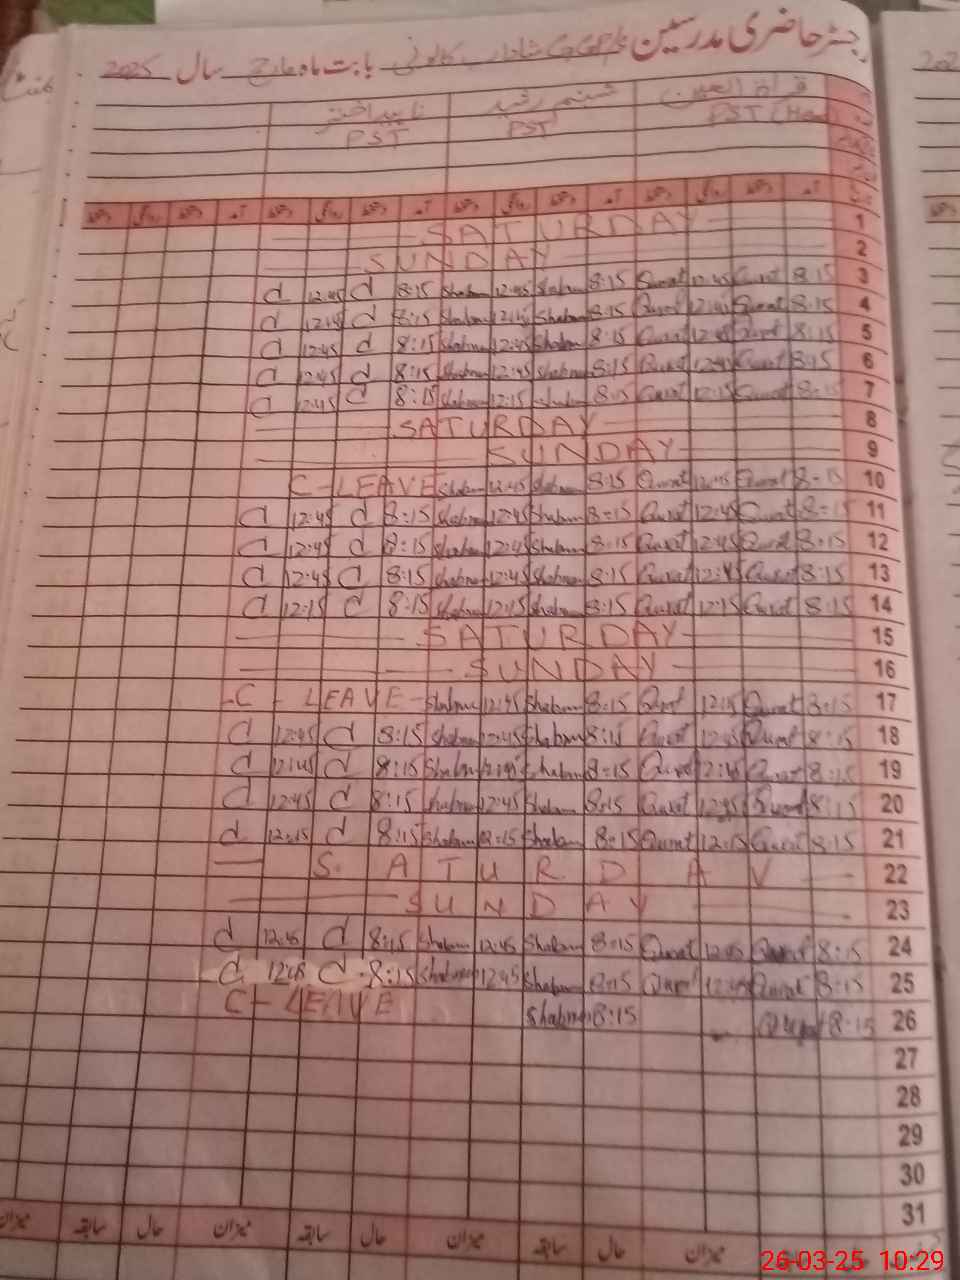 رجسٹر حاضری مدرسین GGPS شاداب کالونی بابت ماہ مارچ سال 2025
قراۃ العین شبنم رشید ناہید اختر
PST (Head) PST PST
آمد دستخط روانگی دستخط آمد دستخط روانگی دستخط آمد دستخط روانگی دستخط آمد دستخط روانگی دستخط
1 SATURDAY
2 SUNDAY
3 8:15 Qurat 12:45 Qurat 8:15 Shabnam 12:45 Shabnam 8:15 d 12:45 d
4 8:15 Qurat 12:45 Qurat 8:15 Shabnam 12:45 Shabnam 8:15 d 12:45 d
5 8:15 Qurat 12:45 Qurat 8:15 Shabnam 12:45 Shabnam 8:15 d 12:45 d
6 8:15 Qurat 12:45 Qurat 8:15 Shabnam 12:45 Shabnam 8:15 d 12:45 d
7 8:15 Qurat 12:15 Qurat 8:15 Shabnam 12:15 Shabnam 8:15 d 12:45 d
8 SATURDAY
9 SUNDAY
10 8=15 Qurat 12:45 Qurat 8:15 Shabnam 12:45 Shabnam C-LEAVE
11 8=15 Qurat 12:45 Qurat 8=15 Shabnam 12:45 Shabnam 8:15 d 12:45 d
12 8:15 Qurat 12:45 Qurat 8:15 Shabnam 12:45 Shabnam 8:15 d 12:45 d
13 8:15 Qurat 12:45 Qurat 8:15 Shabnam 12:45 Shabnam 8:15 d 12:45 d
14 8:15 Qurat 12:15 Qurat 8:15 Shabnam 12:15 Shabnam 8:15 d 12:15 d
15 SATURDAY
16 SUNDAY
17 8:15 Qurat 12:15 Qurat 8:15 Shabnam 12:45 Shabnam C-LEAVE
18 8:15 Qurat 12:45 Qurat 8:15 Shabnam 12:45 Shabnam 8:15 d 12:45 d
19 8:15 Qurat 12:45 Qurat 8:15 Shabnam 12:45 Shabnam 8:15 d 12:45 d
20 8:15 Qurat 12:45 Qurat 8:15 Shabnam 12:45 Shabnam 8:15 d 12:45 d
21 8:15 Qurat 12:15 Qurat 8:15 Shabnam 12:15 Shabnam 8:15 d 12:15 d
22 SATURDAY
23 SUNDAY
24 8:15 Qurat 12:45 Qurat 8:15 Shabnam 12:45 Shabnam 8:15 d 12:45 d
25 8:15 Qurat 12:45 Qurat 8:15 Shabnam 12:45 Shabnam 8:15 d 12:45 d
26 8:15 Qurat 8:15 Shabnam C-LEAVE
27
28
29
30
31
میزان حال سابقہ میزان حال سابقہ میزان حال سابقہ میزان
26-03-25 10:29